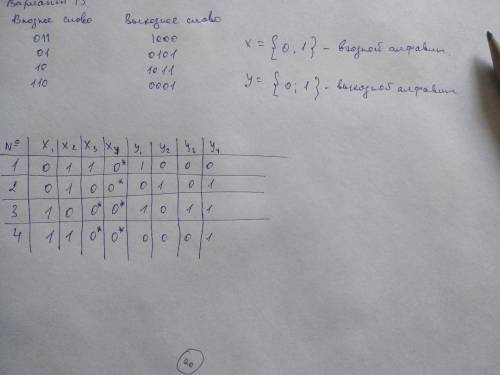 Вариант 13
Входное слово Выходное слово
011 1000
01 0101
10 1011
110 0001
x = {0, 1} - входной алфавит
y = {0; 1} - выходной алфавит
№ x₁ x₂ x₃ x₄ y₁ y₂ y₃ y₄
1 0 1 1 0* 1 0 0 0
2 0 1 0 0* 0 1 0 1
3 1 0 0* 0* 1 0 1 1
4 1 1 0* 0* 0 0 0 1